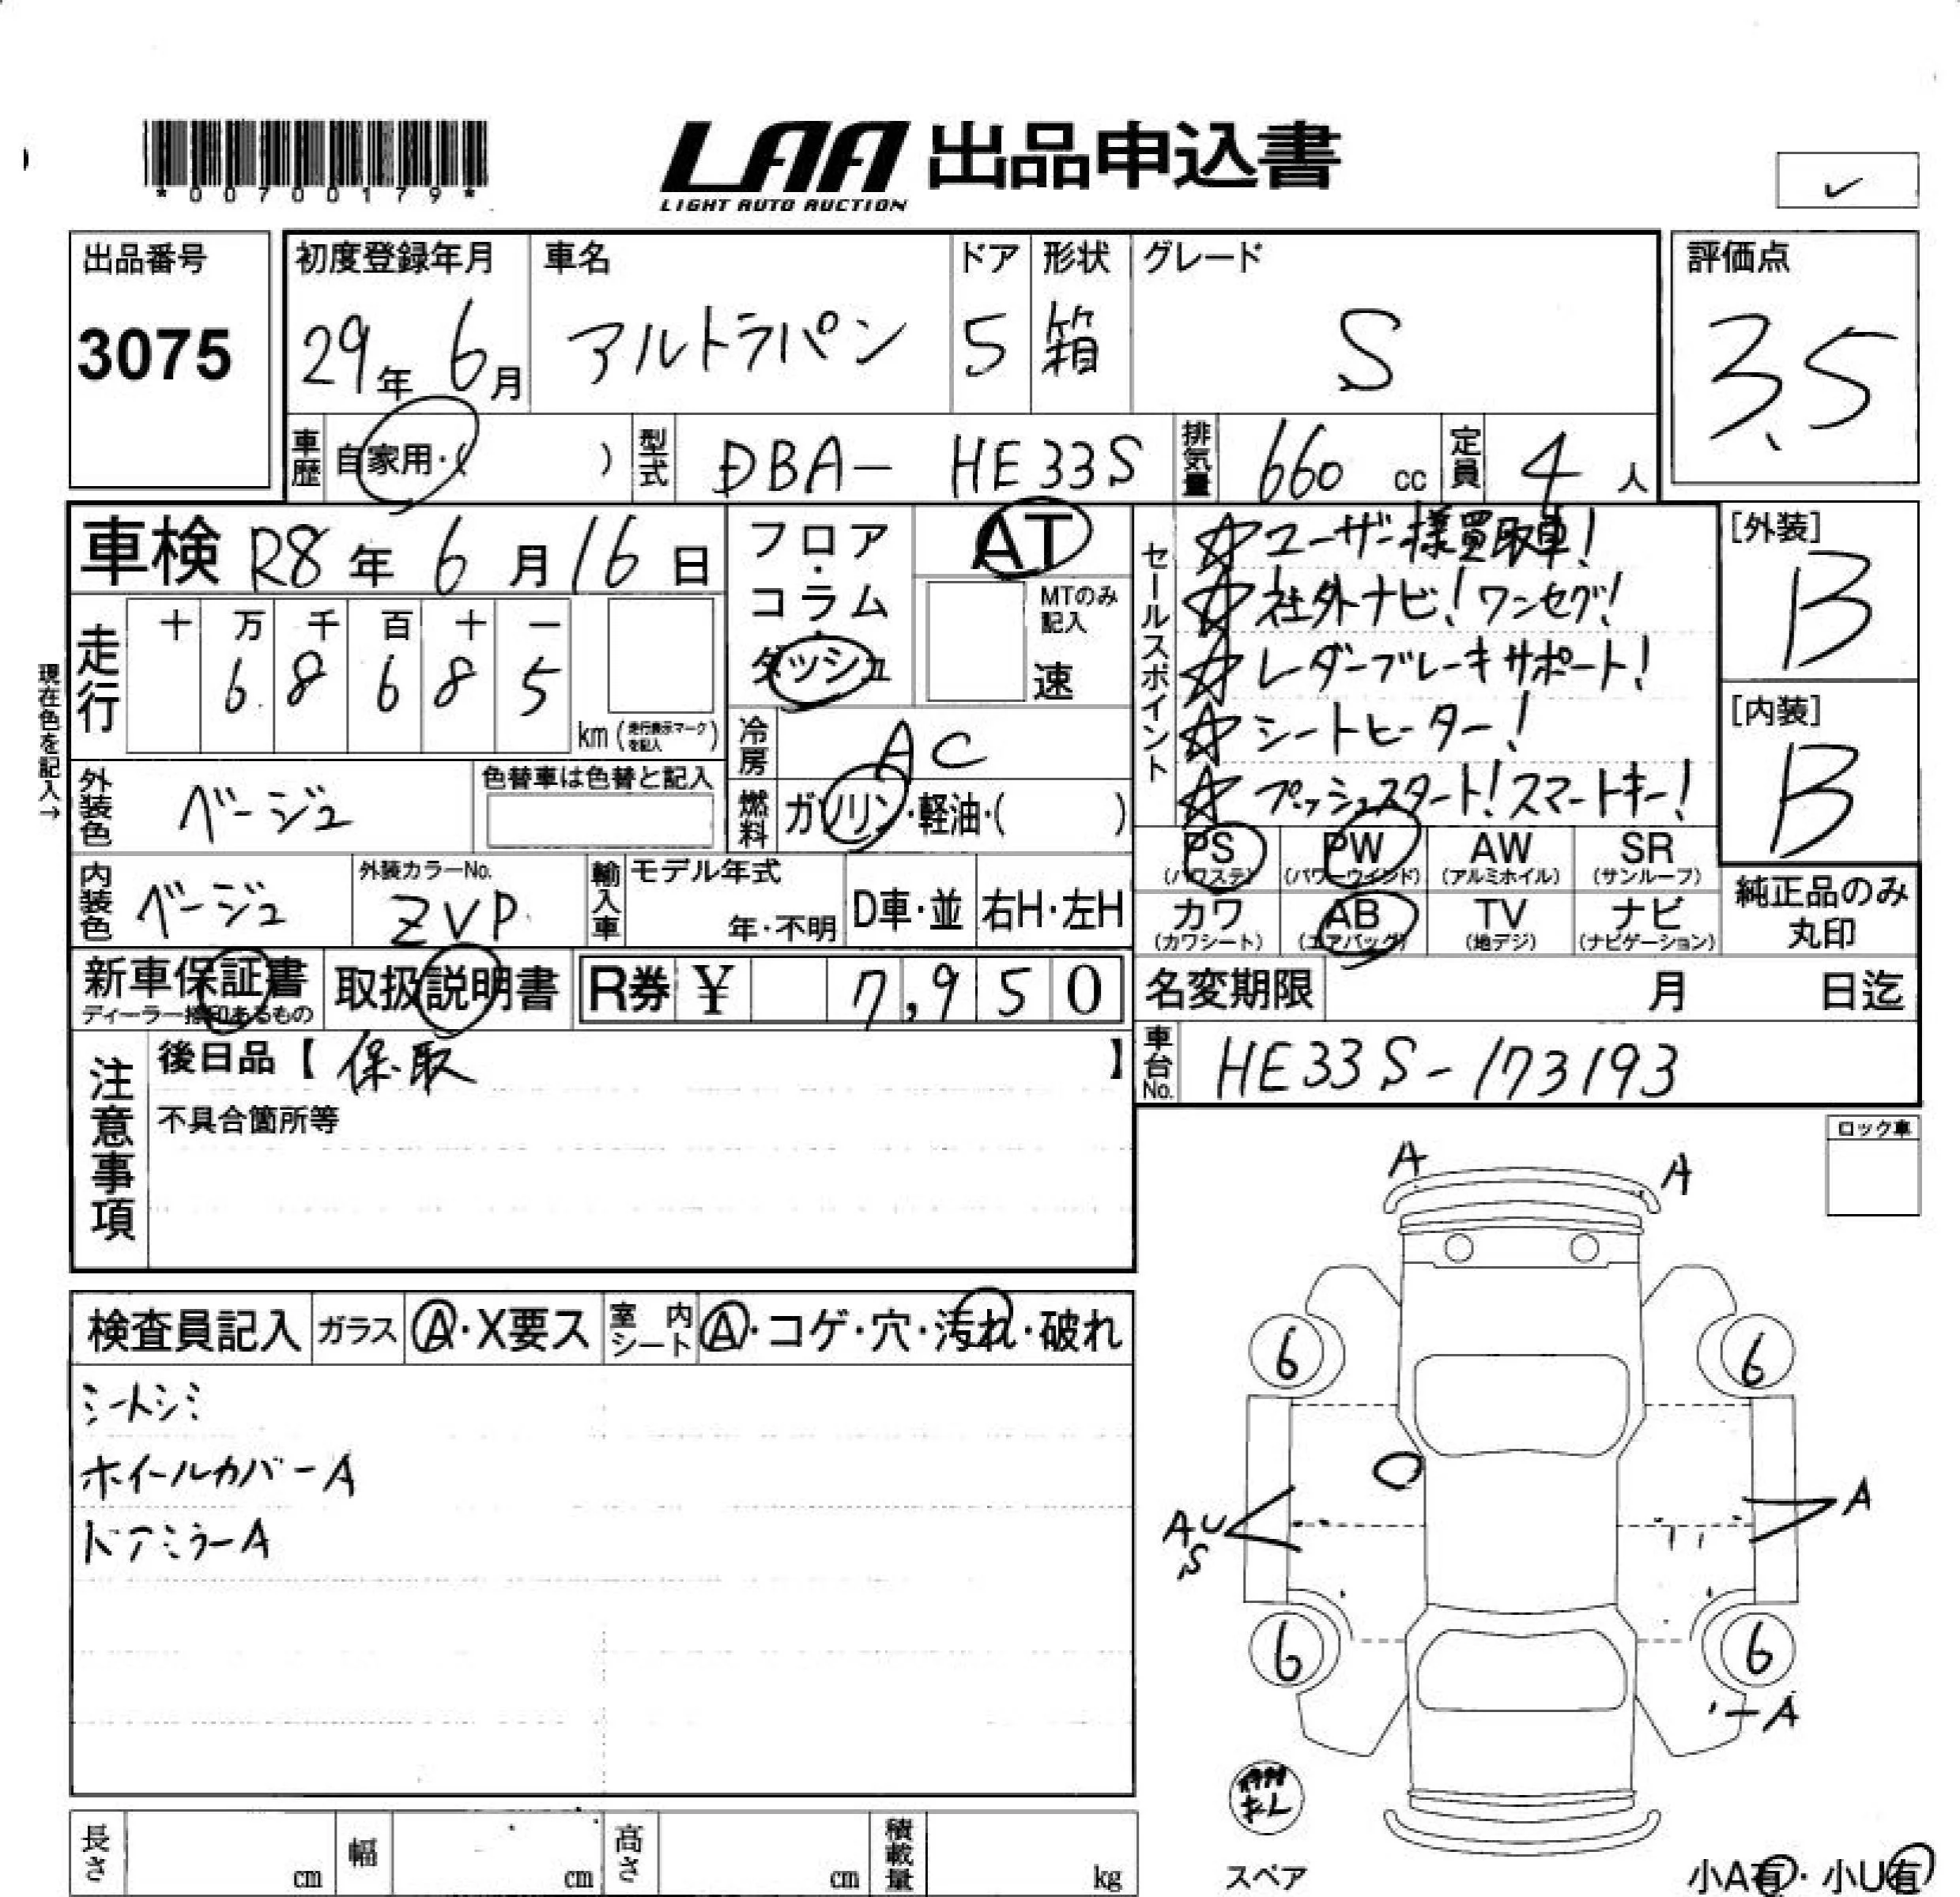 *00700179*
LAA 出品申込書
LIGHT AUTO AUCTION
出品番号
3075
初度登録年月
29年 6月
車名
アルトラパン
ドア
5
形状
箱
グレード
S
評価点
3.5
車歴 自家用・( )
型式 DBA- HE33S
排気量 660 cc
定員 4 人
車検 R8年 6月 16日
走行
十 万 千 百 十 一
6 8 6 8 5
km (走行表示マークを記入)
現在色を記入→
フロア・コラム・ダッシュ
AT
MTのみ記入
速
冷房 AC
燃料 ガソリン・軽油・( )
外装色 ベージュ
色替車は色替と記入
内装色 ベージュ
外装カラーNo.
ZVP
輸入車
モデル年式
年・不明
D車・並
右H・左H
セールスポイント
☆ユーザー様買取車!
☆社外ナビ!ワンセグ!
☆レーダーブレーキサポート!
☆シートヒーター!
☆プッシュスタート!スマートキー!
[外装]
B
[内装]
B
PS (パワステ)
PW (パワーウインド)
AW (アルミホイル)
SR (サンルーフ)
カワ (カワシート)
AB (エアバッグ)
TV (地デジ)
ナビ (ナビゲーション)
純正品のみ丸印
新車保証書
ディーラー捺印あるもの
取扱説明書
R券 ¥ 7,950
名変期限 月 日迄
車台No. HE33S-173193
注意事項
後日品【 保.取 】
不具合箇所等
ロック車
検査員記入
ガラス A・X要ス
室内シート A・コゲ・穴・汚れ・破れ
シートシミ
ホイールカバーA
ドアミラーA
A A
6 6
AU
S
A
6 6
A
キL
スペア
小A有・小U有
長さ cm
幅 cm
高さ cm
積載量 kg